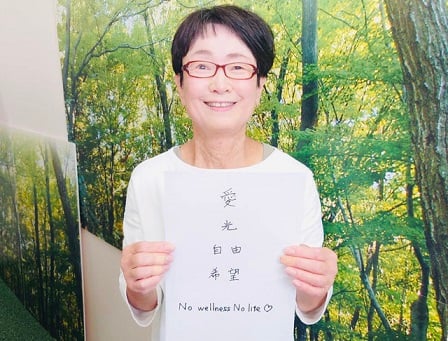 愛
光
自由
希望
No wellness No life ♡